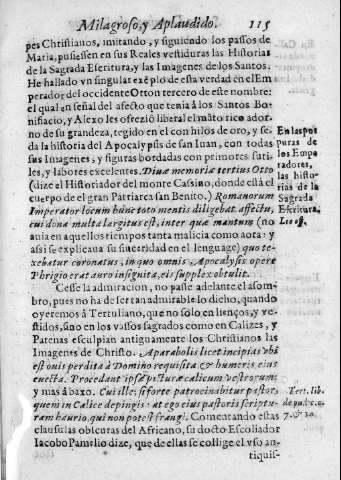 Milagroso, y Aplaudido. 115
pes Christianos, imitando, y siguiendo los passos de
Maria, pusiessen en sus Reales vestiduras las Historias
de la Sagrada Escritura, y las Imagenes de los Santos.
He hallado vn singular exẽplo de esta verdad en el Em
perador del occidente Otton tercero de este nombre:
el qual en señal del afecto que tenia à los Santos Bo-
nifacio, y Alexo les ofreciò liberal el mãto rico ador.
no de su grandeza, tegido en el con hilos de oro, y se-
da la historia del Apocalypsis de san Iuan, con todas
sus Imagenes, y figuras bordadas con primores suti-
les, y labores excelentes. Diuæ memoriæ tertius Otto
(dize el Historiador del monte Cassino, donde està el
cuerpo de el gran Patriarca san Benito.) Romanorum
Imperator locum hunc toto mentis diligebat affectu,
cui dona multa largitus est, inter quæ mantum (no
auia en aquellos tiempos tanta malicia como aora: y
assi se explicaua su sinceridad en el lenguage) quo te-
xebatur coronatus, in quo omnis Apocalypsis opere
Phrigio erat auro insignita, eis supplex obtulit.
Cesse la admiracion, no passe adelante el asom-
bro, pues no ha de ser tan admirable lo dicho, quando
oyeremos à Tertuliano, que no solo en lienços, y ve-
stidos, sino en los vassos sagrados como en Calizes, y
Patenas esculpian antiguamente los Christianos las
Imagenes de Christo. A parabolis licet incipias vbi
est ouis perdita à Domino requisita & humeris eius
euecta. Procedant ipsæ picturæ calicum vestrorum:
y mas à baxo. Cui ille, si forte patrocinabitur pastor,
quem in Calice depingis: at ego eius pastoris scriptu-
ram haurio, qui non potest frangi. Comentando estas
clausulas obscuras del Africano, su docto Escoliador
Iacobo Pamelio dize, que de ellas se collige el vso an-
tiquis-
En las pur
puras de
los Empe
radores,
las histo-
rias de la
Sagrada
Escritura.
Tert. lib.
de pud. c.
7. & 10.